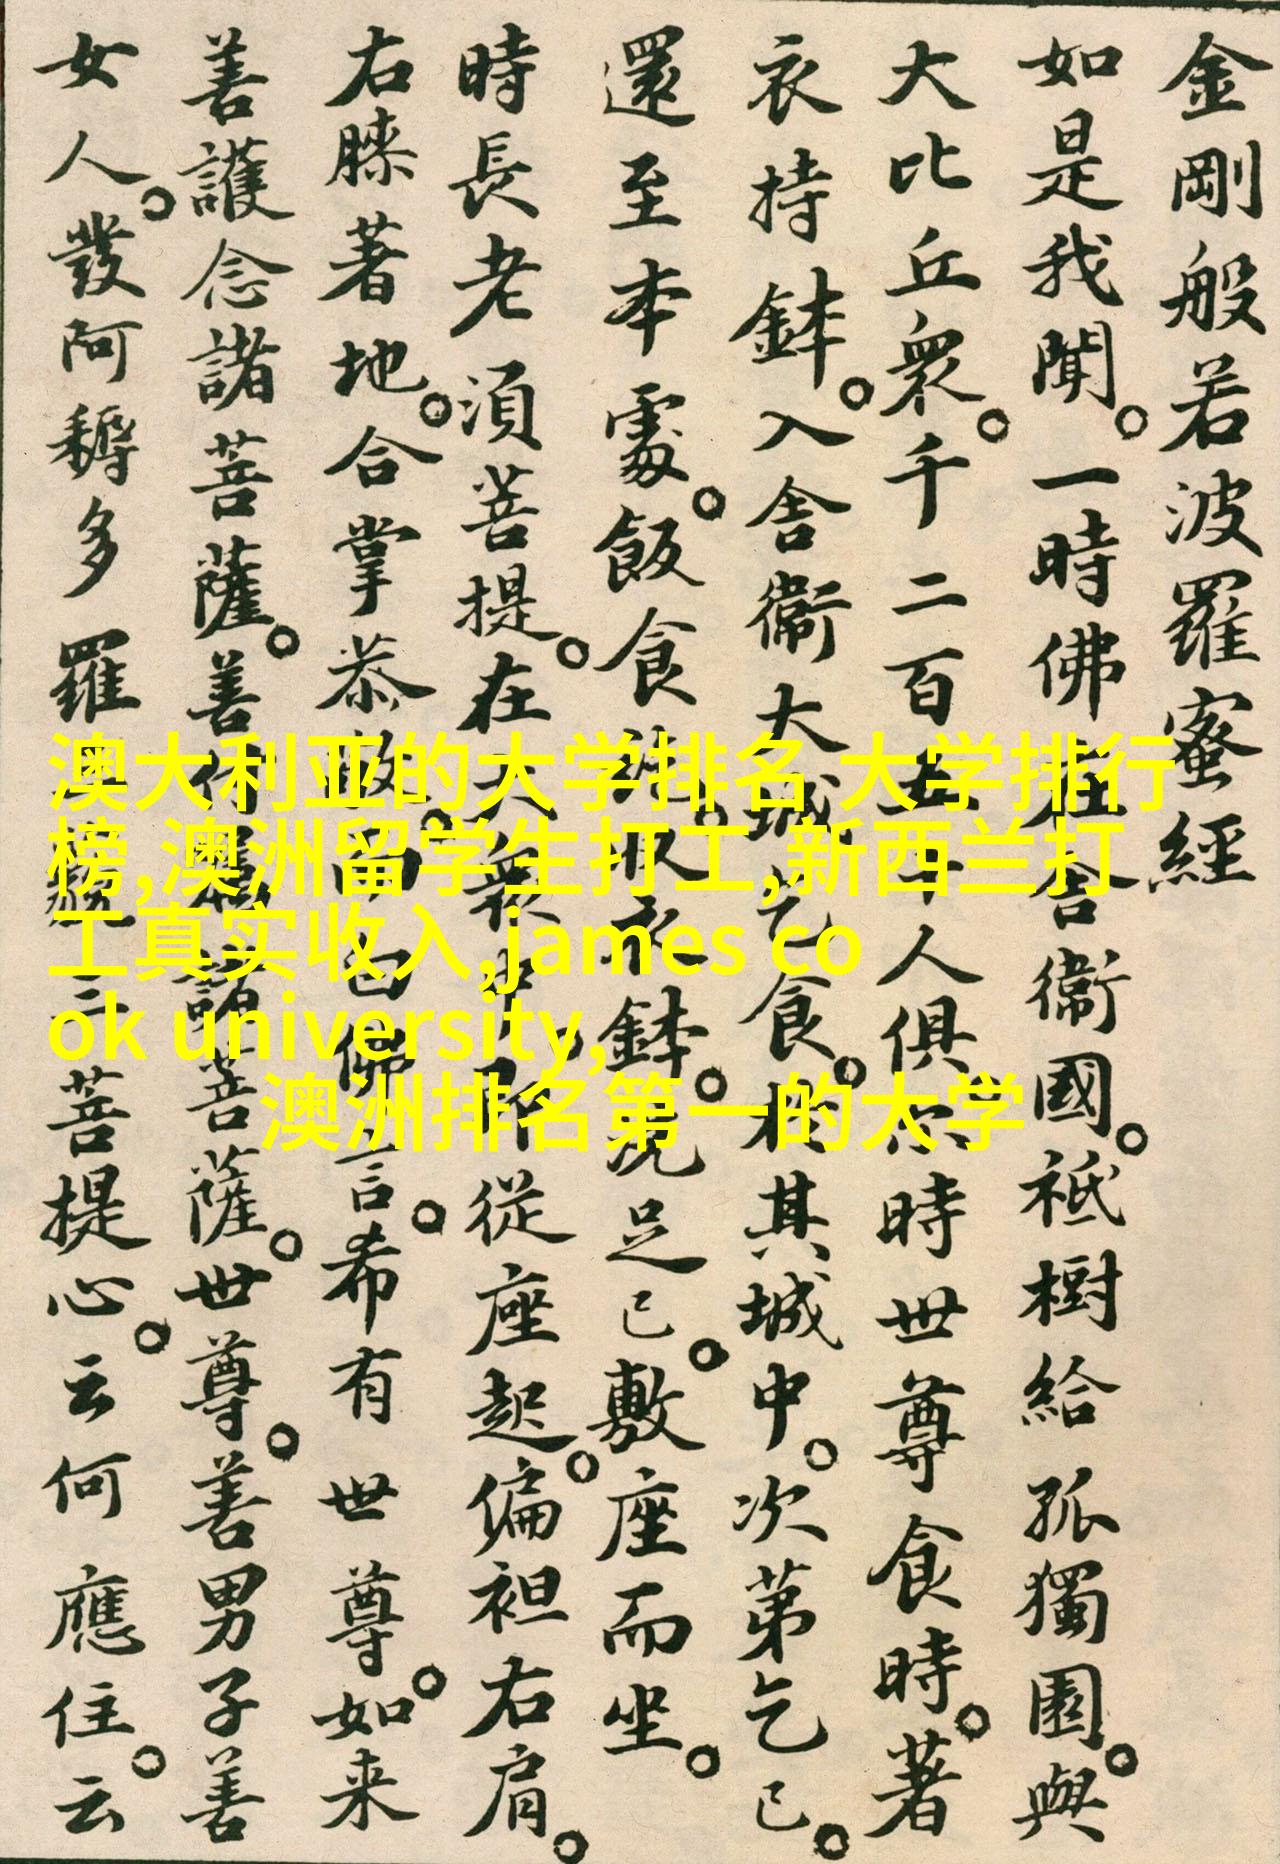 金剛般若波羅蜜經
如是我聞。一時佛在舍衞國。祇樹給孤獨園。與
大比丘衆。千二百五十人俱尔時世尊食時。著
衣持鉢。入舍衞大城乞食。於其城中。次第乞已。
還至本處。飯食訖。收衣鉢。洗足已。敷座而坐。
時長老須菩提。在大衆中。即從座起。偏袒右肩。
右膝著地。合掌恭敬。而白佛言。希有世尊。如来
善護念諸菩薩。善付囑諸菩薩。世尊。善男子善
女人。發阿耨多羅三藐三菩提心。云何應住。云
澳大利亚的大学排名 大学排行
榜,澳洲留学生打工,新西兰打
工真实收入,james co
ok university,
澳洲排名第一的大学